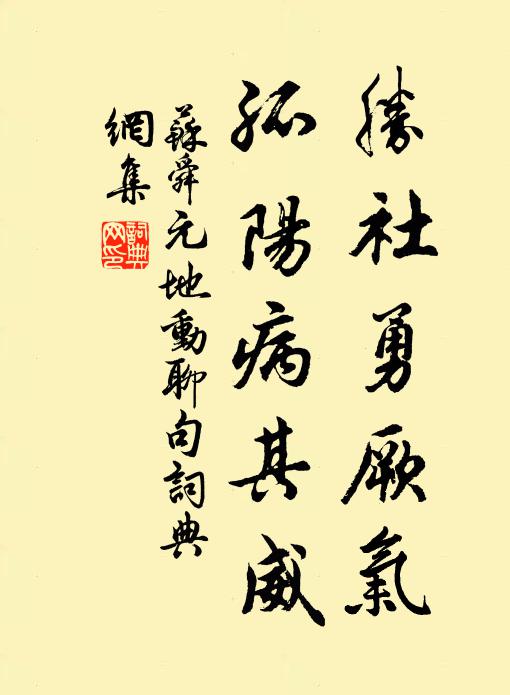 勝社勇厥氣
孤陽病其威
蘇舜元地動聊句詞典
網集
詞典
网印